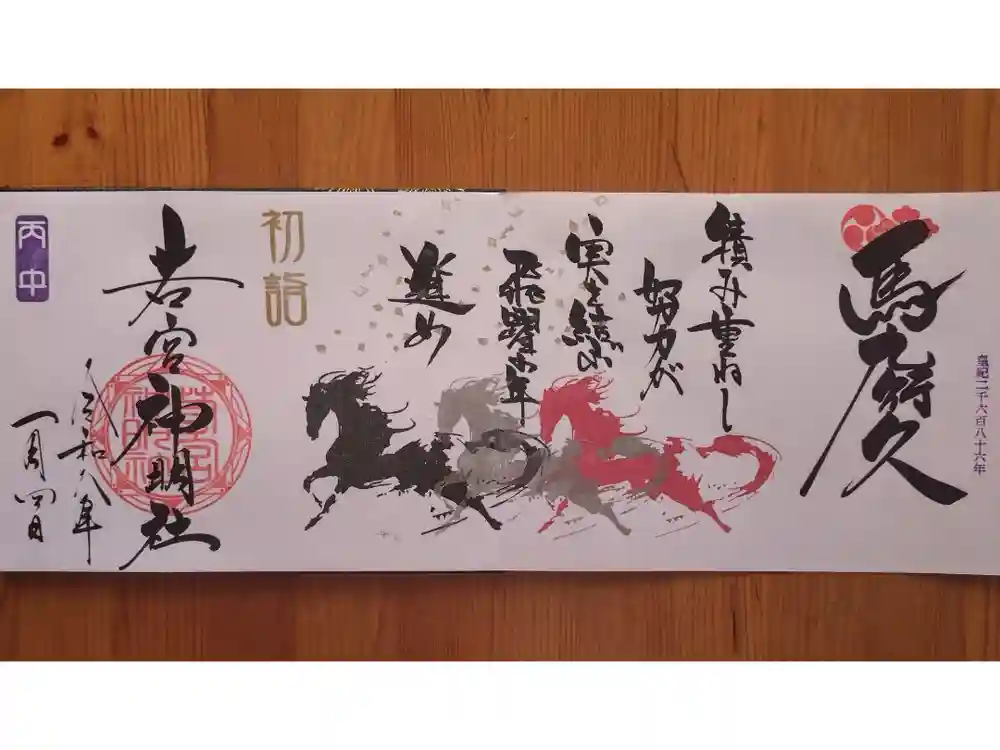 馬九行久
皇紀二千六百八十六年
積み重ねし
努力が
実を結ぶ
飛躍の年
進め
初詣
若宮神明社
令和八年
一月四日
丙午